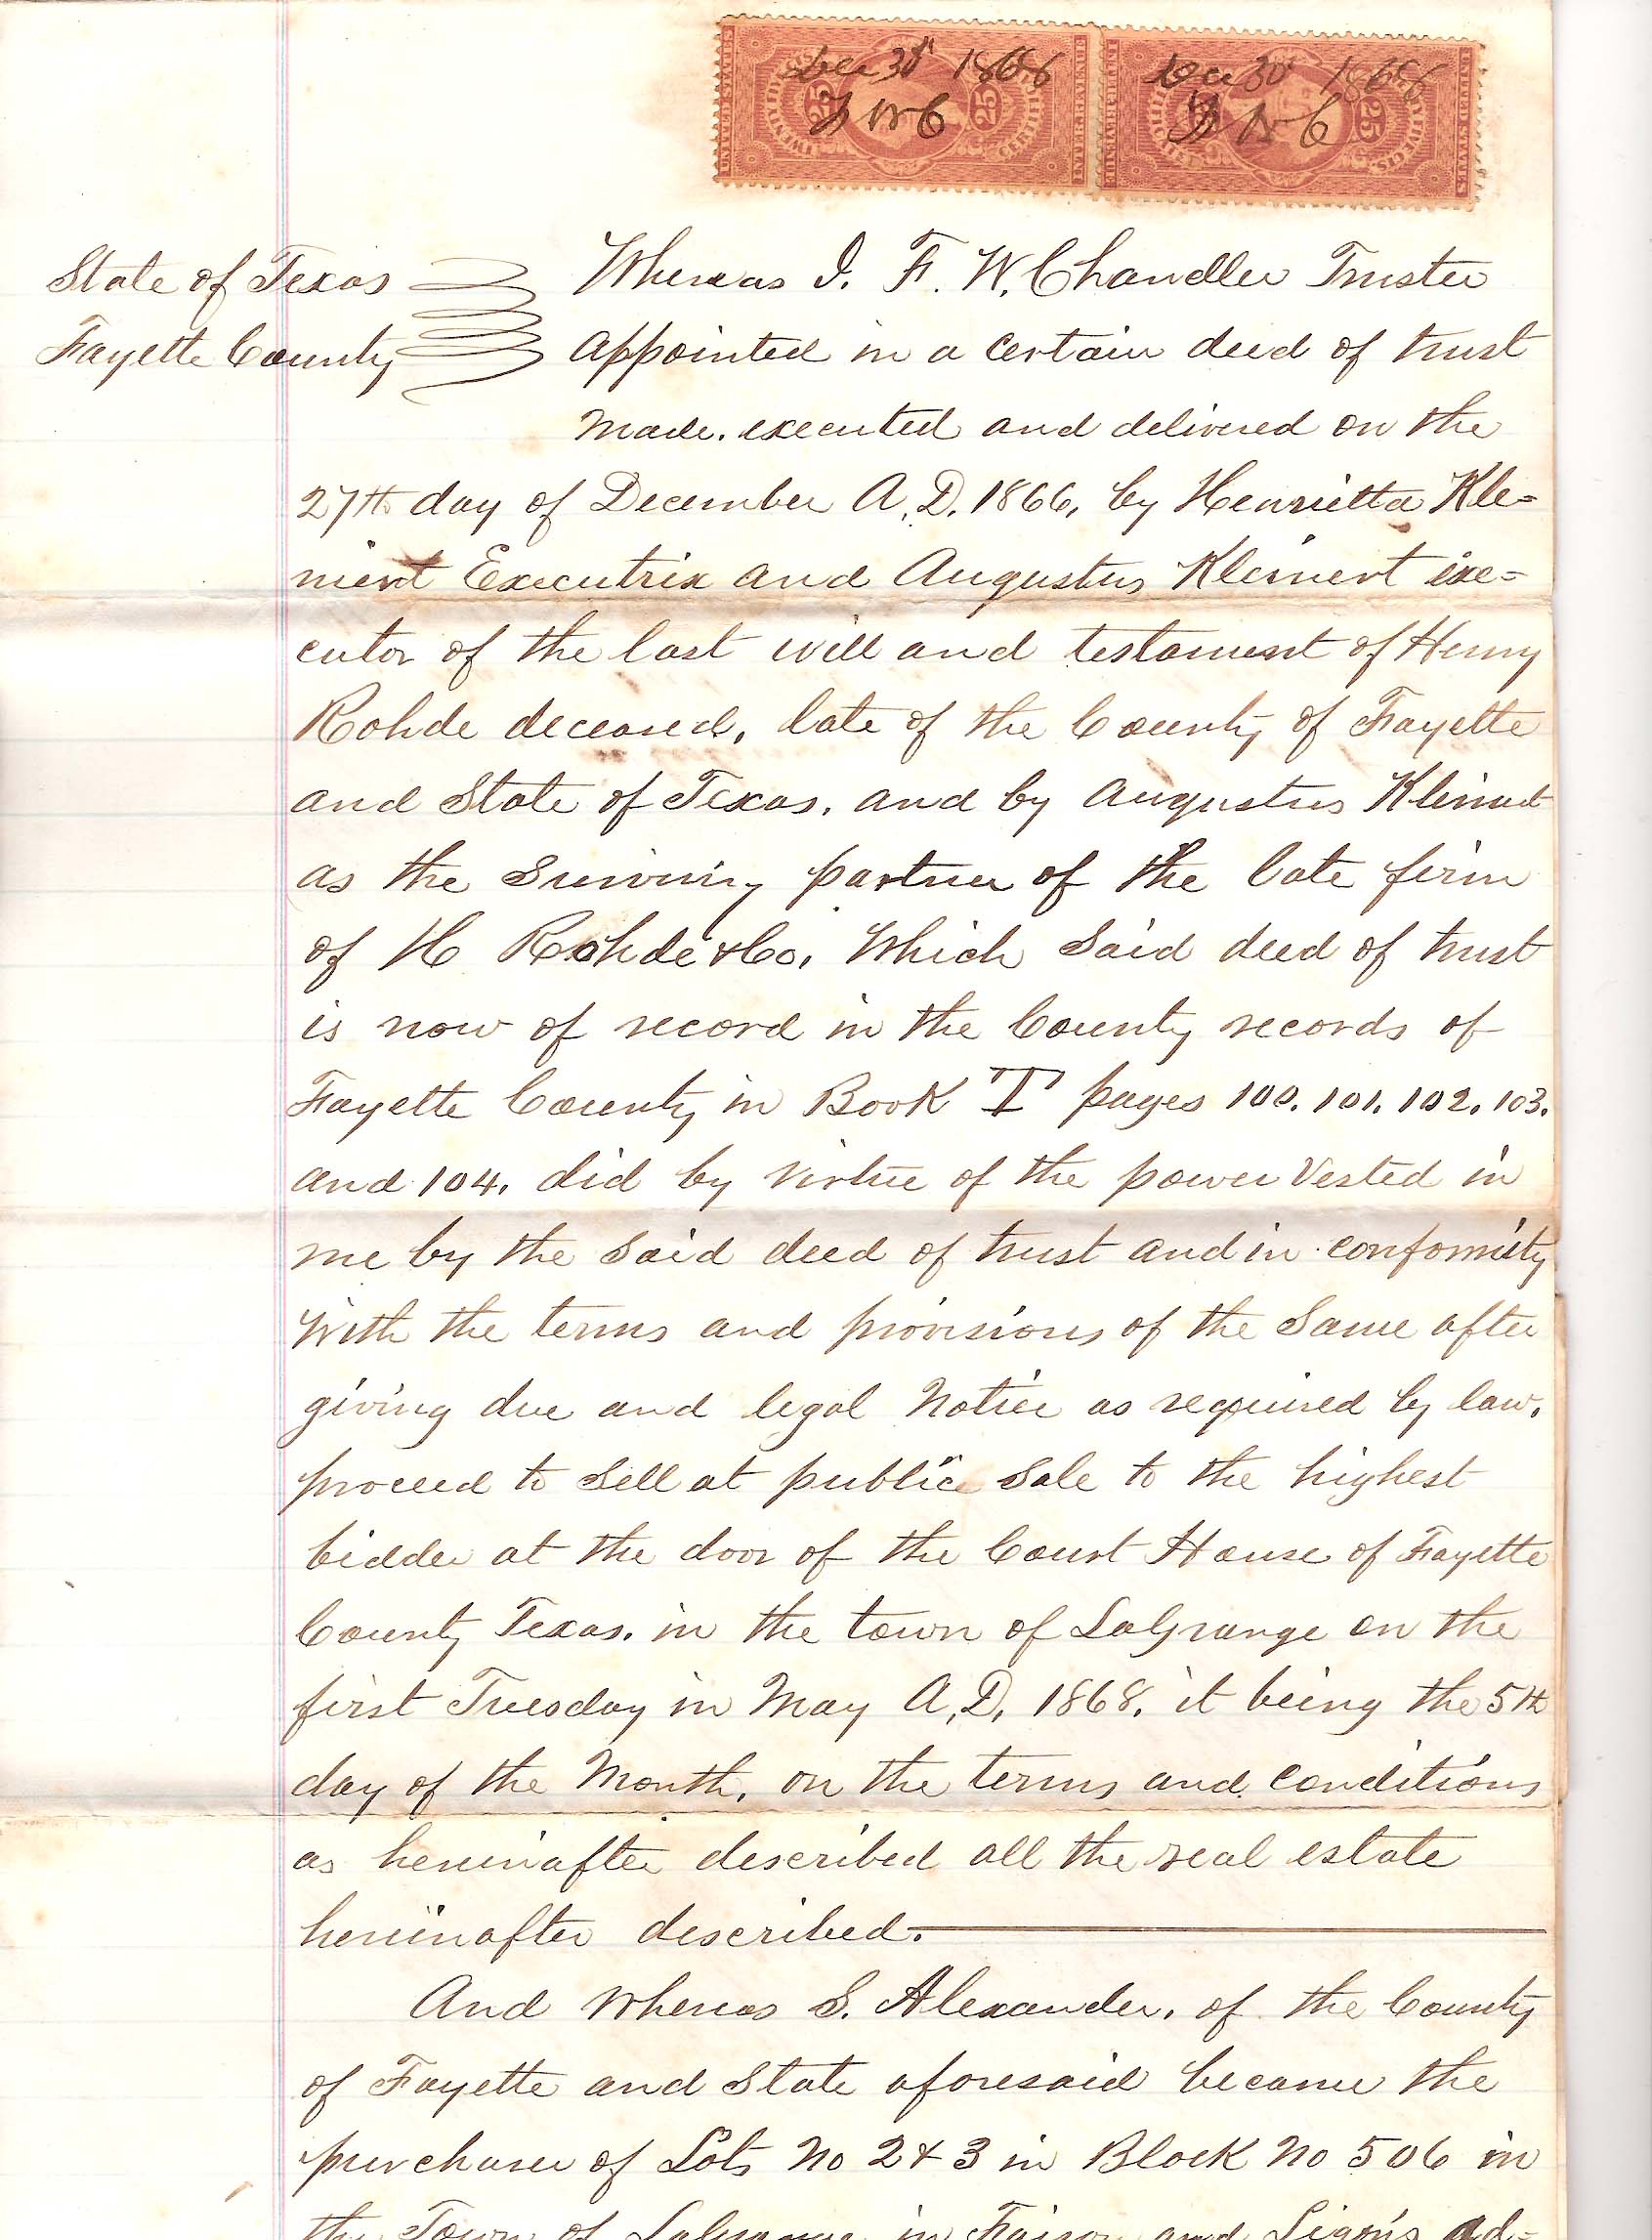 Dec 30 1868
F W C
Dec 30 1868
F W C
State of Texas
Fayette County
Whereas I. F. W. Chandler Trustee
appointed in a certain deed of trust
made. executed and delivered on the
27th day of December A.D. 1866, by Henrietta Kle=
inert Executrix and Augustus Kleinert exe=
cutor of the last will and testament of Henry
Rohde deceased, late of the County of Fayette
and State of Texas. and by Augustus Kleinert
as the Surviving partner of the late firm
of H Rohde & Co. Which Said deed of trust
is now of record in the County records of
Fayette County in Book "T" pages 100. 101. 102. 103.
and 104. did by virtue of the power Vested in
me by the Said deed of trust and in conformity
With the terms and provisions of the Same after
giving due and legal Notice as required by law.
proceed to Sell at public Sale to the highest
bidder at the door of the Court House of Fayette
County Texas. in the town of LaGrange on the
first Tuesday in May A.D. 1868. it being the 5th
day of the Month. on the terms and conditions
as hereinafter described all the real estate
hereinafter described.
And Whereas S. Alexander. of the County
of Fayette and State aforesaid became the
purchaser of Lots No 2 & 3 in Block No 506 in
the Town of LaGrange in Faison and Ligon's ad=